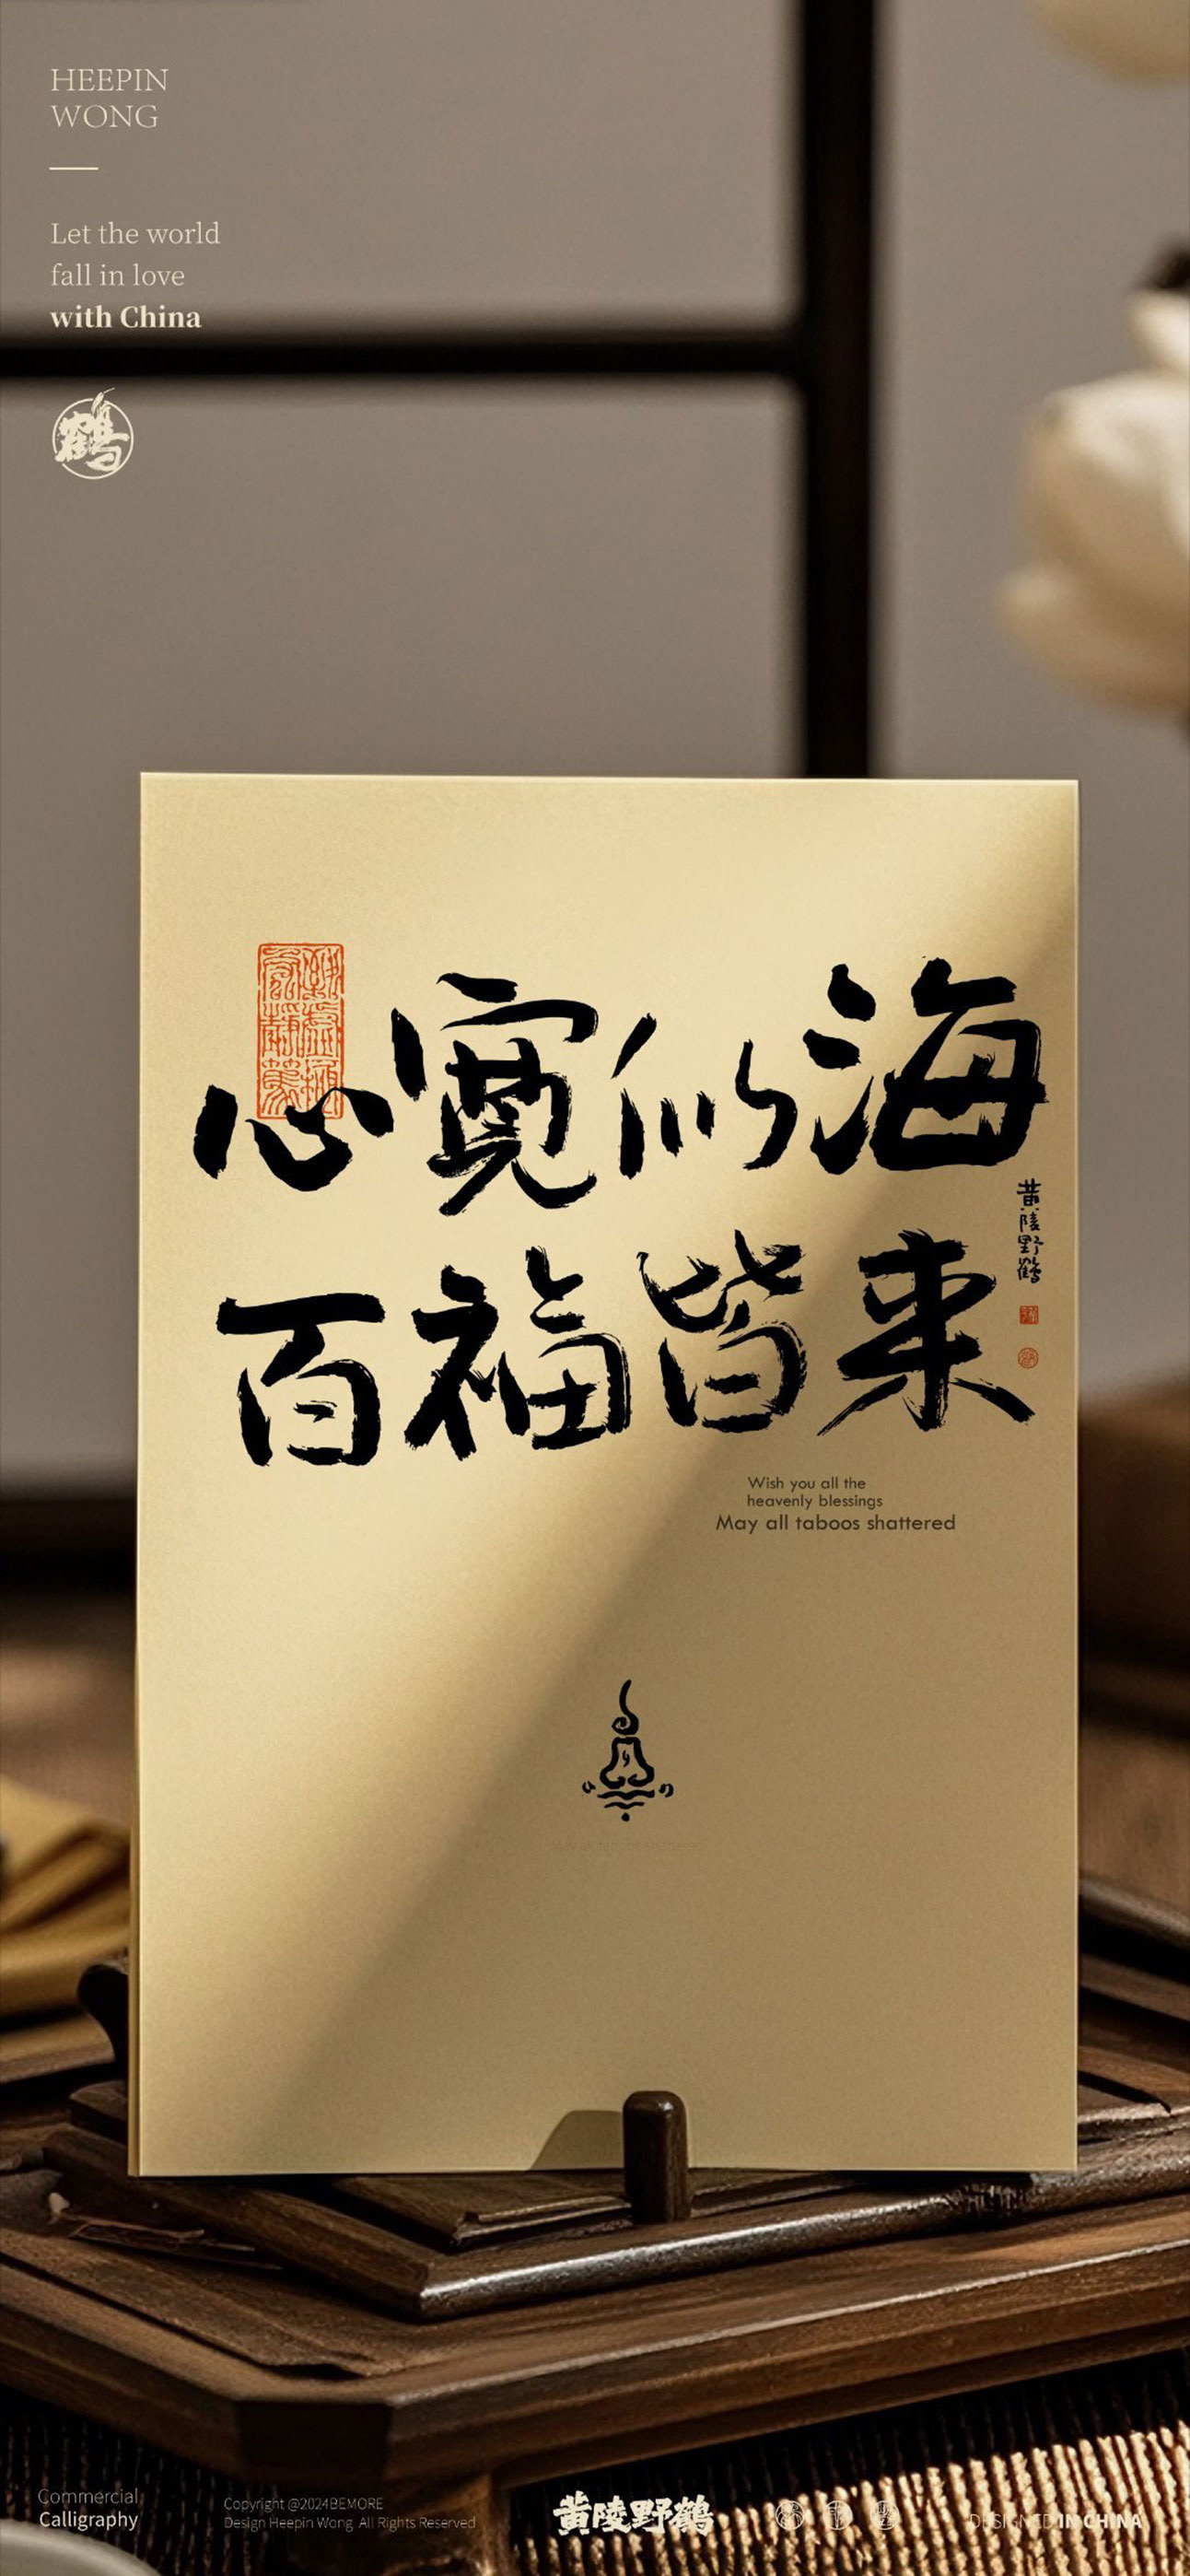 HEEPIN
WONG
Let the world
fall in love
with China
鹤
心宽似海
百福皆来
黄陵野鹤
Wish you all the
heavenly blessings
May all taboos shattered
Commercial
Calligraphy
Copyright @2024BEMORE
Design Heepin Wong All Rights Reserved
黄陵野鹤
DESIGNED IN CHINA